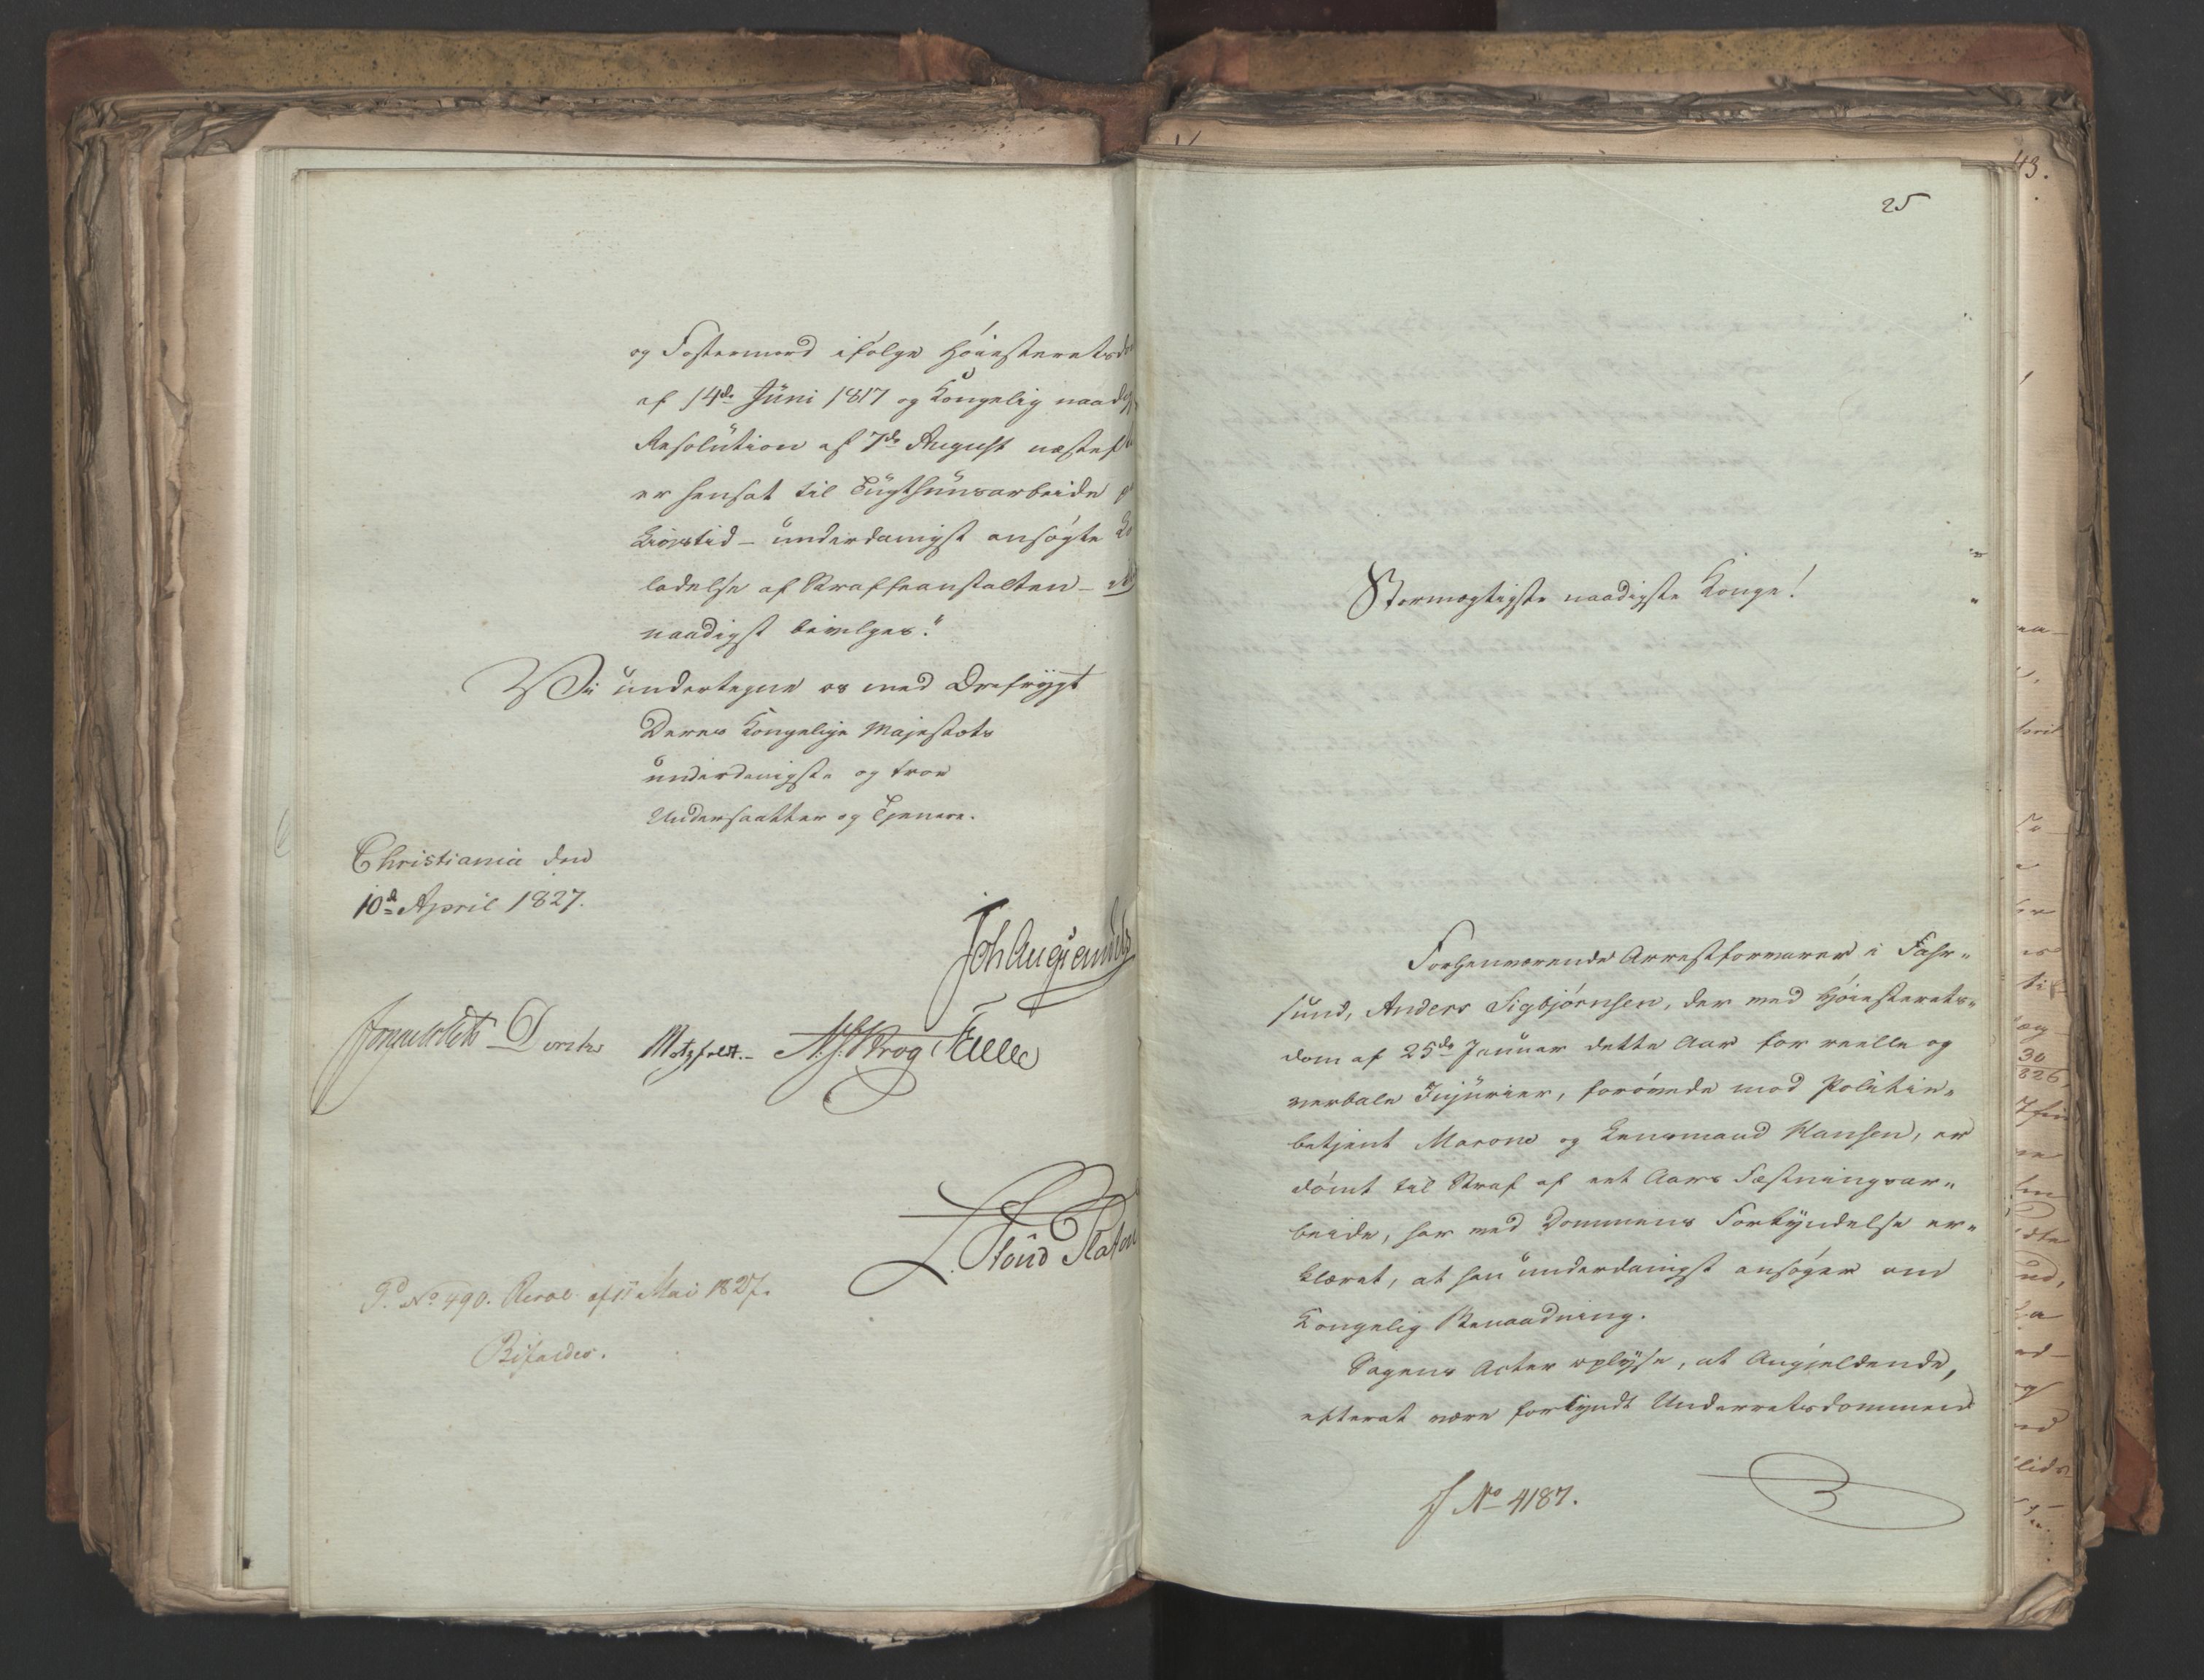 og Fostermord ifølge Høiesteretsdo
af 14de Juni 1817 og Kongelig naadig
Resolution af 7de August næstef
er hensat til Tugthuusarbeide p
Livstid – underdanigst ansøgte Lø
ladelse af Straffeanstalten – ei
naadigst bevilges."
Vi undertegne os med Ærefrygt
Deres Kongelige Majestæts
underdanigste og troe
Undersaatter og Tjenere.
Christiania den
10de April 1827.
Diriks Motzfeldt. – N. J. Krog
P. No 490. Resol. af 11 Mai 1827.
Bifaldes.
25
Stormægtigste naadigste Konge!
Forhenværende Arrestforvarer i Fahr„
sund, Anders Sigbjørnsen, der med Høiesterets„
dom af 25de Januar dette Aar for reelle og
verbale Injurier, forøvede mod Politie„
betjent Marone og Lensmand Hansen, er
dømt til Straf af eet Aars Fæstningsar„
beide, har ved Dommens Forkyndelse er„
klæret, at han underdanigst ansøger om
Kongelig Benaadning.
Sagens Acter oplyse, at Angjeldende,
efterat være forkyndt Underretsdommen
J No 4187.
43.